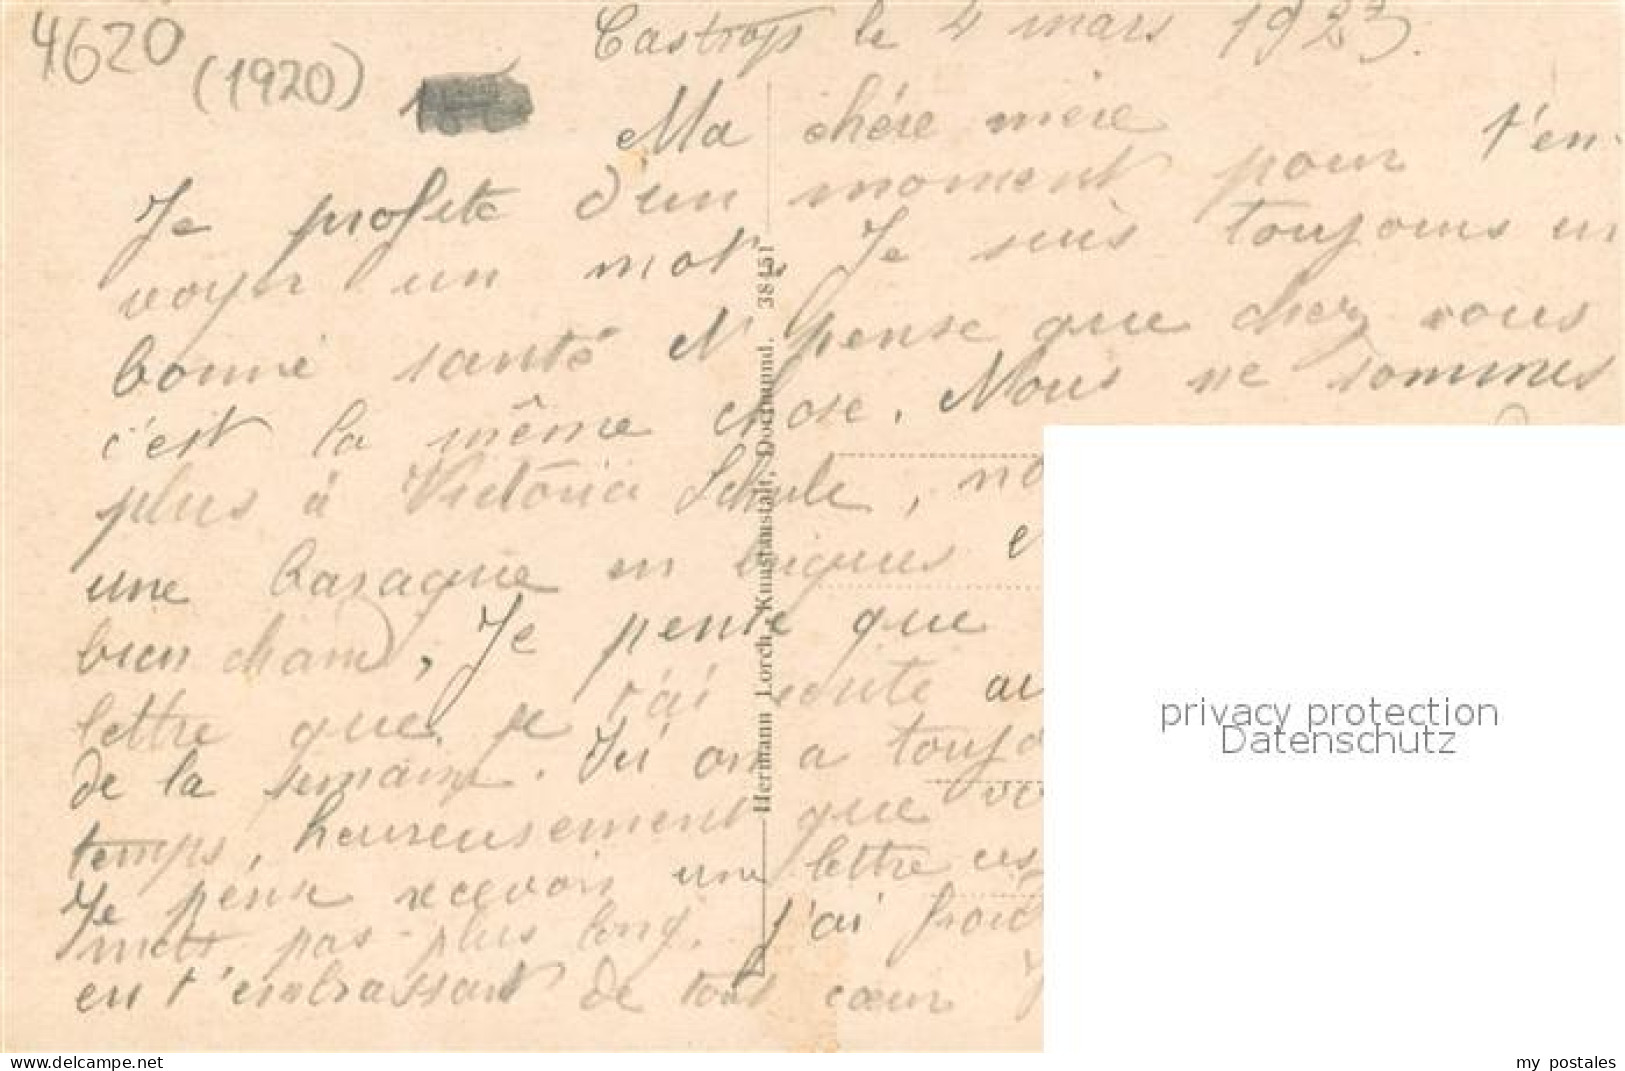 4620
(1920)
Castrop le 4 mars 1923.
Ma chère mère
Je profite d'un moment pour t'en-
voyer un mot, Je suis toujours en
bonne santé et pense que chez vous
c'est la même chose. Nous ne sommes
plus à Victoria Schule, no
une baraque en briques e
bien chaud, Je pense que
lettre que je t'ai écrite au
de la semaine. Ici on a toujo
temps, heureusement que
Je pense recevoir une lettre ces
mets pas plus long. J'ai froid
en t'embrassant de tout cœur
Hermann Lorch, Kunstanstalt, Dortmund. 38451
privacy protection
Datenschutz
www.delcampe.net
my_postales